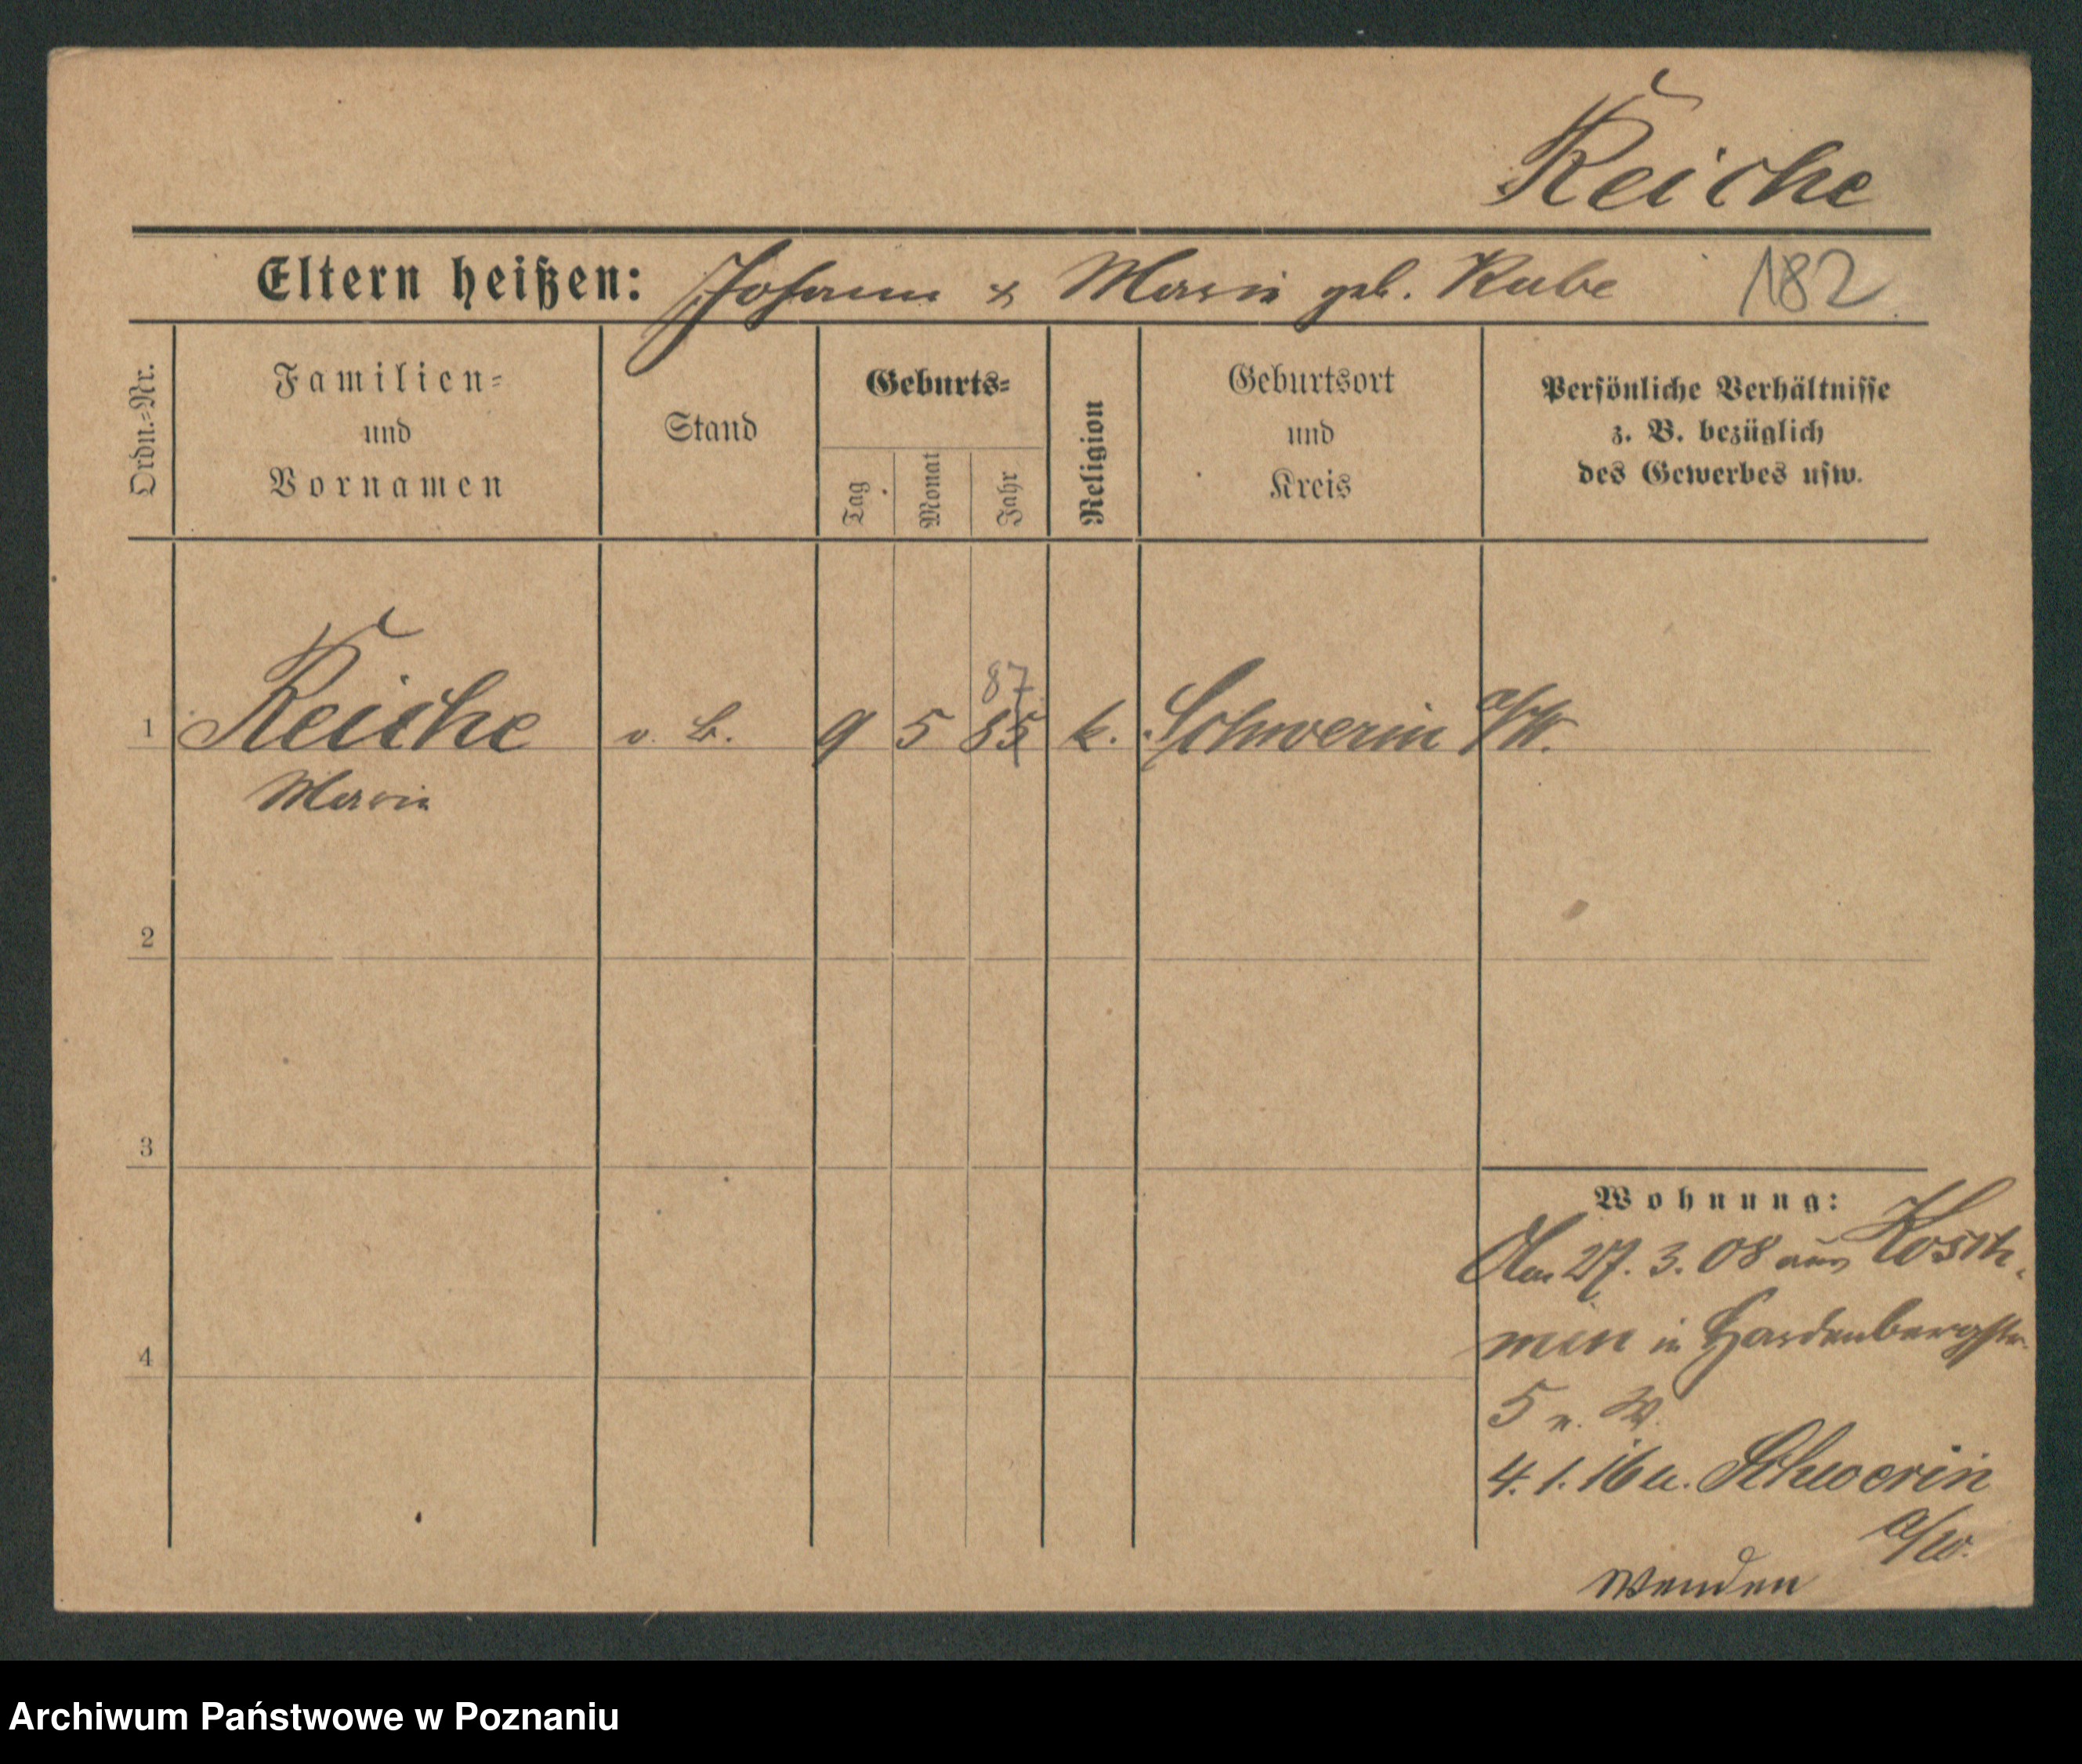 Reiche
Eltern heißen: Johann & Maria geb. Kube 182
Ordn.=Nr.
Familien=
und
Vornamen
Stand
Geburts=
Tag
Monat
Jahr
Religion
Geburtsort
und
Kreis
Persönliche Verhältnisse
z. B. bezüglich
des Gewerbes usw.
87
1 Reiche o. B. 9 5 85 k. Schwerin a/W.
Maria
2
3
4
Wohnung:
Am 27. 3. 08 aus Kosch-
min in Hardenbergstr.
5 n. W.
4. 1. 16 n. Schwerin
a/W.
Wenden
Archiwum Państwowe w Poznaniu